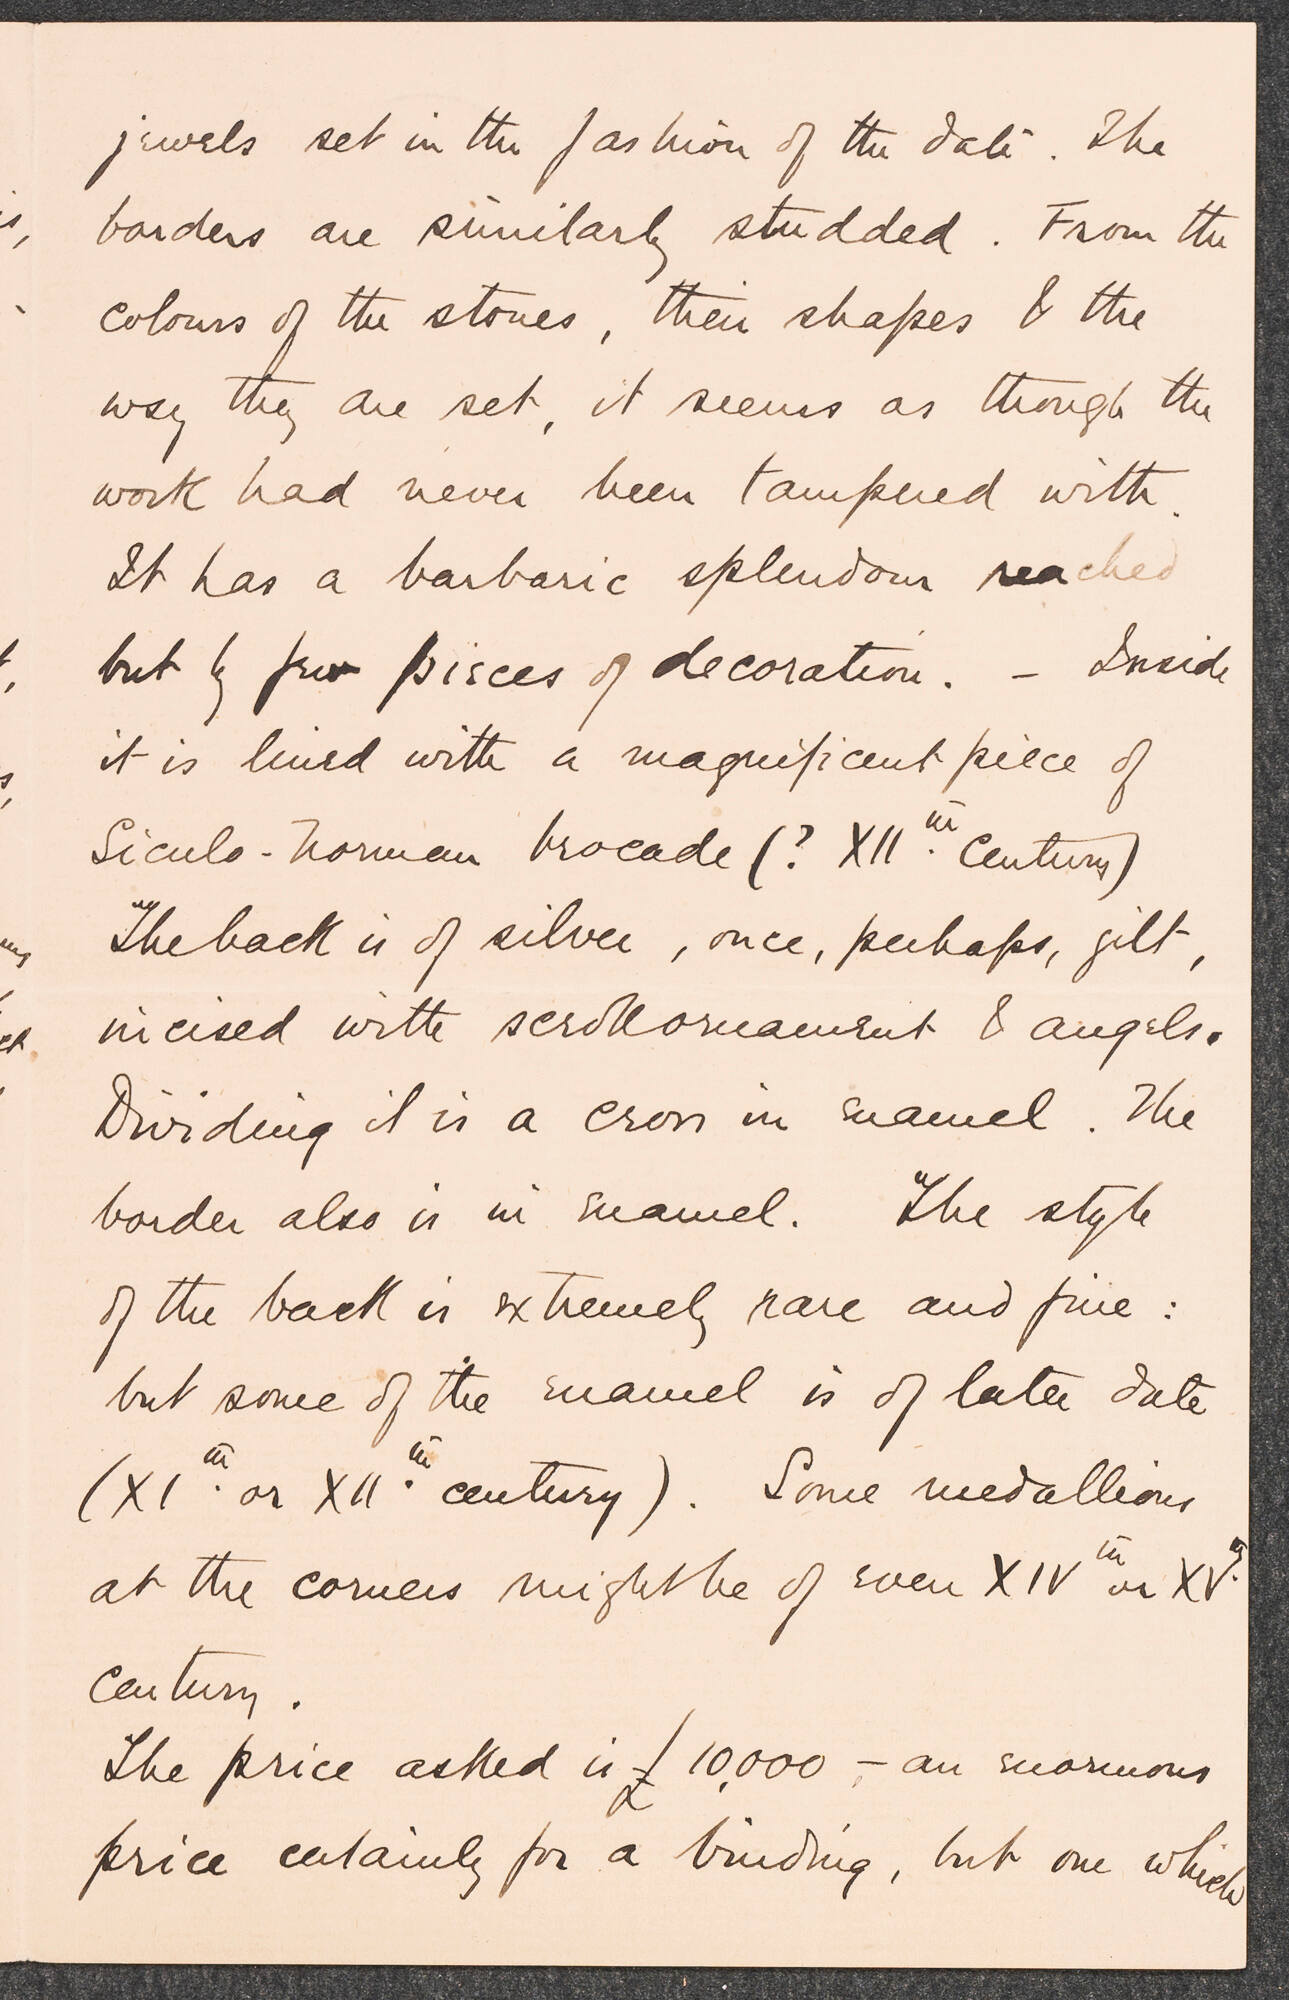 jewels set in the fashion of the date. The
borders are similarly studded. From the
colours of the stones, their shapes & the
way they are set, it seems as though the
work had never been tampered with.
It has a barbaric splendour reached
but by few pieces of decoration. – Inside
it is lined with a magnificent piece of
Siculo-Norman brocade (? XIIth. Century)
The back is of silver, once, perhaps, gilt,
incised with scroll ornament & angels.
Dividing it is a cross in enamel. The
border also is in enamel. The style
of the back is extremely rare and fine:
but some of the enamel is of later date
(XIth. or XIIth. century). Some medallions
at the corners might be of even XIVth or XVth.
century.
The price asked is £10,000 – an enormous
price certainly for a binding, but one which